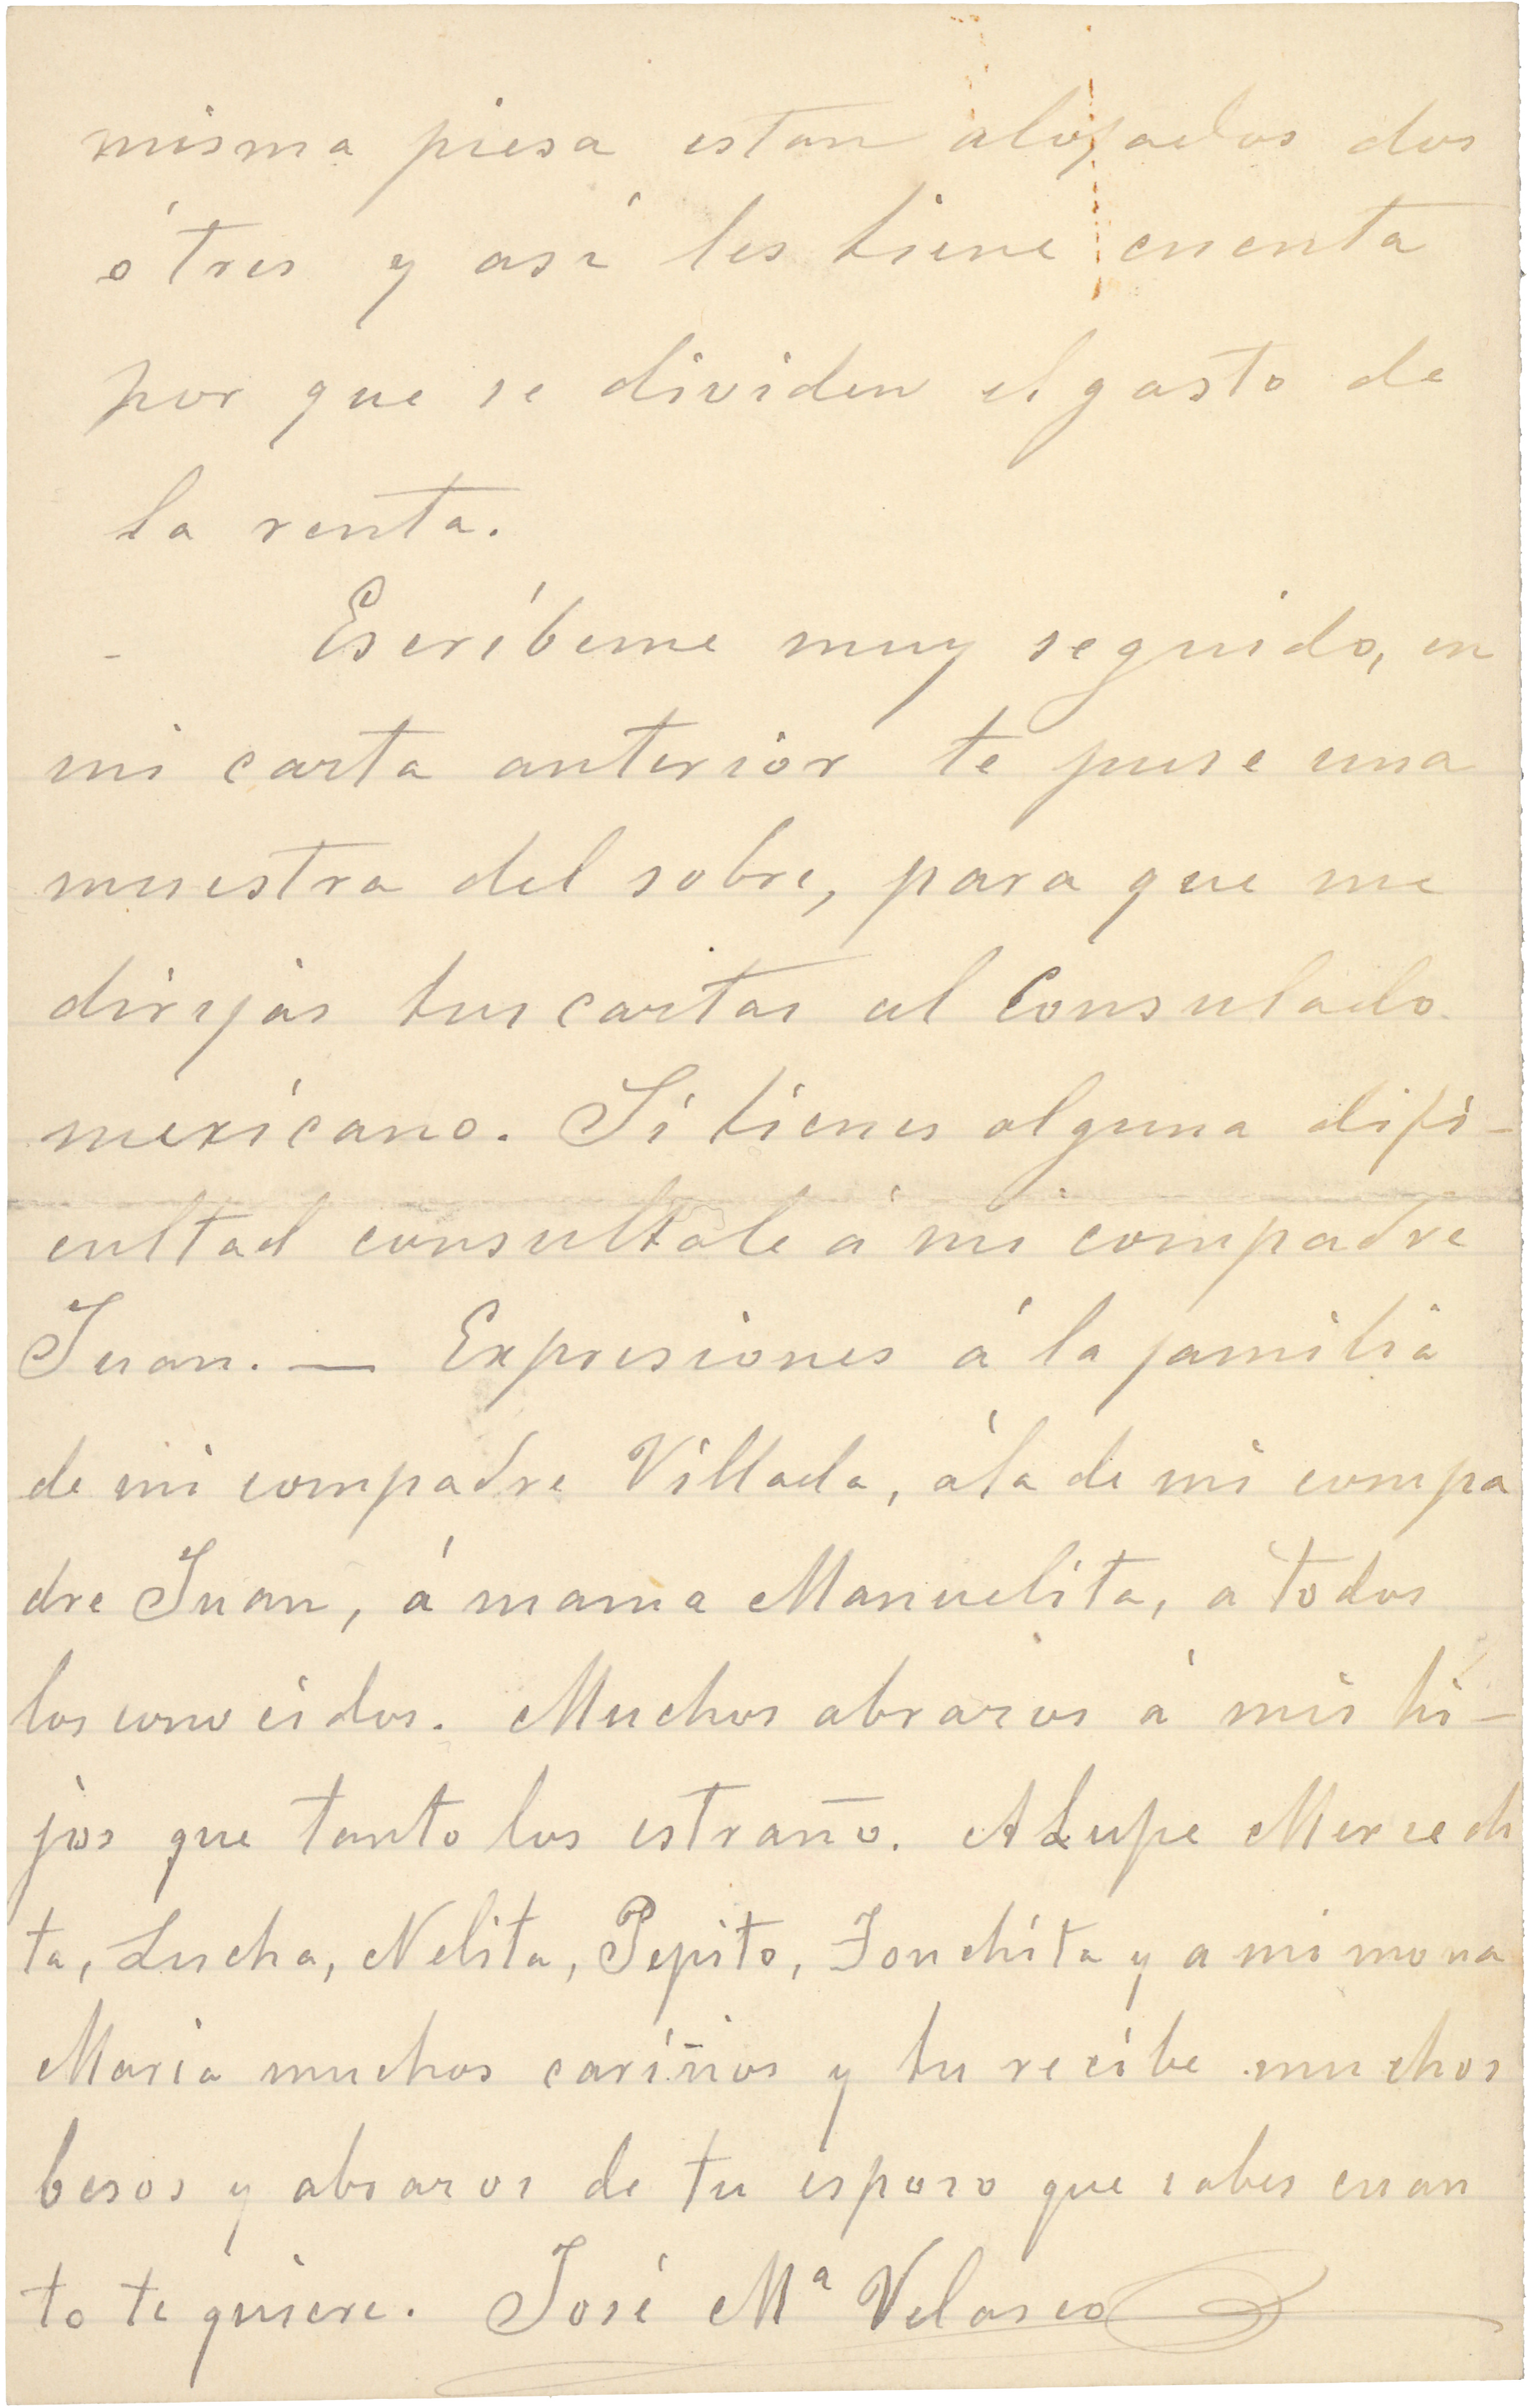 misma piesa estan alojados dos
ó tres y así les tiene cuenta
por que se dividen el gasto de
la renta.
- Escríbeme muy seguido, en
mi carta anterior te puse una
muestra del sobre, para que me
dirijas tus cartas al Consulado
mexicano. Si tienes alguna difi-
cultad consultale á mi compadre
Juan. — Expresiones á la familia
de mi compadre Villada, á la de mi compa
dre Juan, á mama Manuelita, a todos
los conocidos. Muchos abrazos á mis hi-
jos que tanto los estraño. A Lupe Mercedi
ta, Lucha, Nelita, Pepito, Conchita y a mi mona
Maria muchos cariños y tu recibe muchos
besos y abrazos de tu esposo que sabes cuan
to te quiere. José Mª Velasco